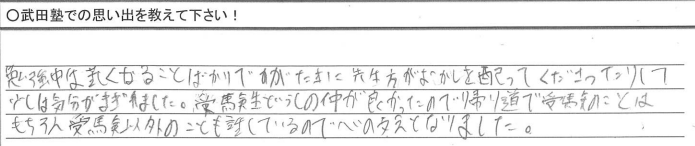 〇武田塾での思い出を教えて下さい！
勉強中は苦しくなることばかりですがたまに先生方がおかしを配ってくださったりして
少しは気分がまぎれました。受験生どうしの仲が良かったので帰り道で受験のことは
もちろん受験以外のことも話しているので心の支えとなりました。